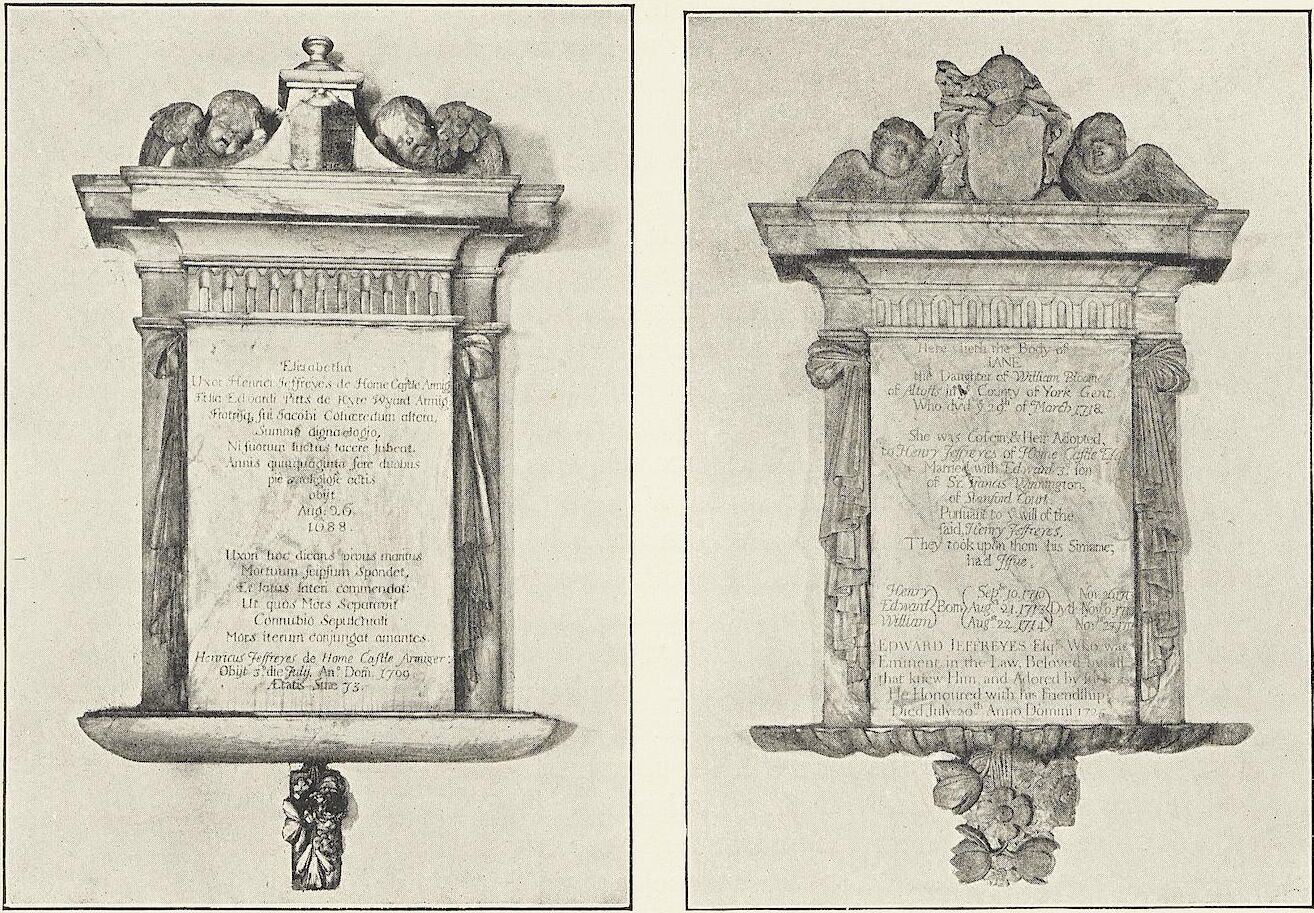 Elizabetha
Uxor Henrici Jeffreyes de Home Castle Armig
Filia Edvardi Pitts de Kyre Wyard Armig
Fratrisq, sui Jacobi Cohæredum altera,
Summo digna elogio,
Ni suorum luctus tacere jubent.
Annis quinquaginta fere duobus
pie & religiose actis
obijt
Aug. 26
1688.
Uxori hoc dicans vivus maritus
Mortuum seipsum Spondet,
Et fatus fateri commendat:
Ut quos Mors Separavit
Connubio Sepulchrali
Mors iterum conjungat amantes.
Henricus Jeffreyes de Home Castle Armiger.
Obijt 3º die Julij. Anº Dom. 1709
Ætatis Suæ 73.
Here lieth the Body of
JANE
the Daughter of William Bloome
of Altofts in yᵉ County of York Gent.
Who dyd yᵉ 29th of March 1718.
She was Cosein & Heir Adopted,
to Henry Jeffreyes of Home Castle Esq
Married with Edward 3d. Son
of Sr. Francis Winnington,
of Stanford Court
Pursuant to yᵉ will of the
said, Henry Jeffreyes,
They took upon them his Sirname;
had Issue,
Henry Sepᵗ 10, 1710 Nov
Edward Born Aug 21, 1713 Dyd Nov
William Augᵗ 22, 1714 Novʳ
EDWARD JEFFREYES Esqʳ Who was
Eminent in the Law, Beloved by all
that knew Him, and Adored by
He Honoured with his Friendship,
Died July 20th Anno Domini